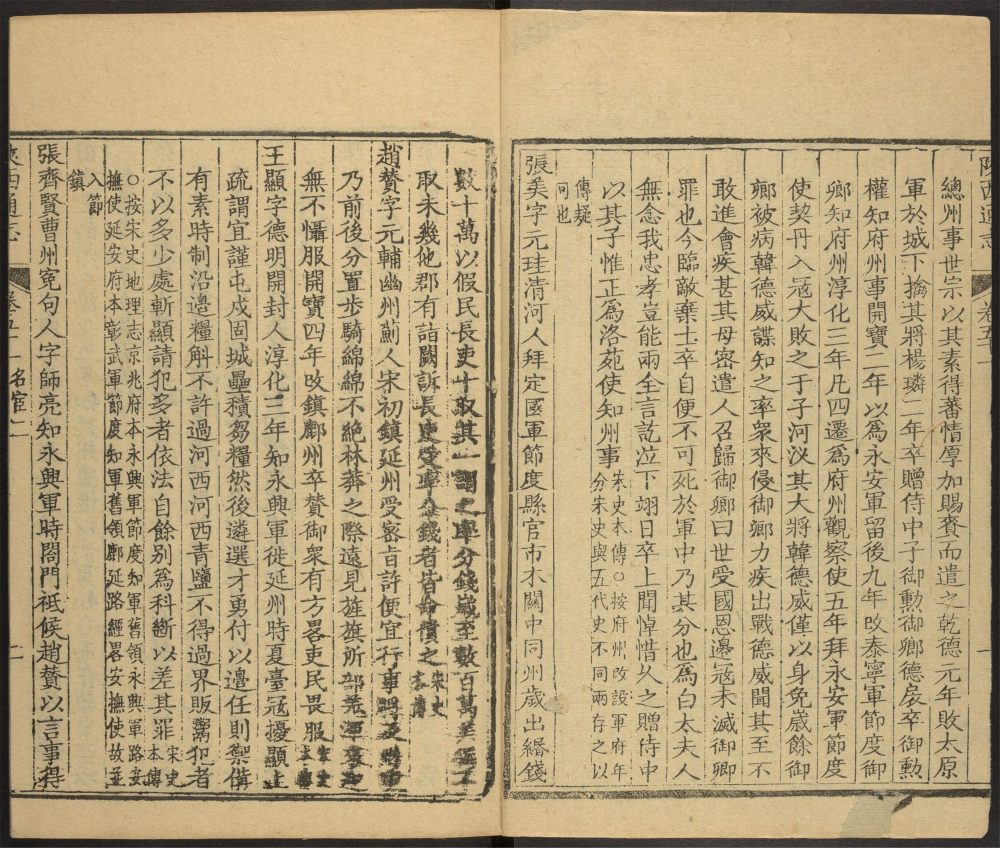 陝西通志
卷五一
一
總州事世宗以其素得蕃情厚加賜賚而遣之乾德元年敗太原
軍於城下擒其將楊璘二年卒贈侍中子御勳御卿德扆卒御勳
權知府州事開寶二年以為永安軍留後九年改泰寧軍節度御
卿知府州淳化三年凡四遷為府州觀察使五年拜永安軍節度
使契丹入寇大敗之于子河汊其大將韓德威僅以身免歲餘御
卿被病韓德威諜知之率衆來侵御卿力疾出戰德威聞其至不
敢進會疾甚其母密遣人召歸御卿曰世受國恩邊寇未滅御卿
罪也今臨敵棄士卒自便不可死於軍中乃其分也為白太夫人
無念我忠孝豈能兩全言訖泣下翊日卒上聞悼惜久之贈侍中
以其子惟正為洛苑使知州事宋史本傳○按府州改設軍府年
分宋史與五代史不同兩存之以
傳疑
可也
張美字元珪清河人拜定國軍節度縣官市木關中同州歲出緡錢
數十萬以假民長吏十取其一謂之率分錢歲至數百萬美獨不
取未幾他郡有詣闕訴長吏受率分錢者皆命償之宋史
本傳
趙贊字元輔幽州薊人宋初鎮延州受密旨許便宜行事
乃前後分置步騎綿綿不絕林莽之際遠見旌旗所部
無不懾服開寶四年改鎮鄜州卒贊御衆有方畧吏民畏服宋史
本傳
王顯字德明開封人淳化三年知永興軍徙延州時夏臺寇擾顯上
疏謂宜謹屯戍固城壘積芻糧然後遴選才勇付以邊任則禦備
有素時制沿邊糧斛不許過河西河西青鹽不得過界販鬻犯者
不以多少處斬顯請犯多者依法自餘別為科斷以差其罪宋史
本傳
○按宋史地理志京兆府本永興軍節度知軍舊領永興軍路安
撫使延安府本彰武軍節度知軍舊領鄜延路經畧安撫使故並
入節
鎮
張齊賢曹州寃句人字師亮知永興軍時閤門祗候趙贊以言事得
陝西通志
卷五十一
名宦二
二